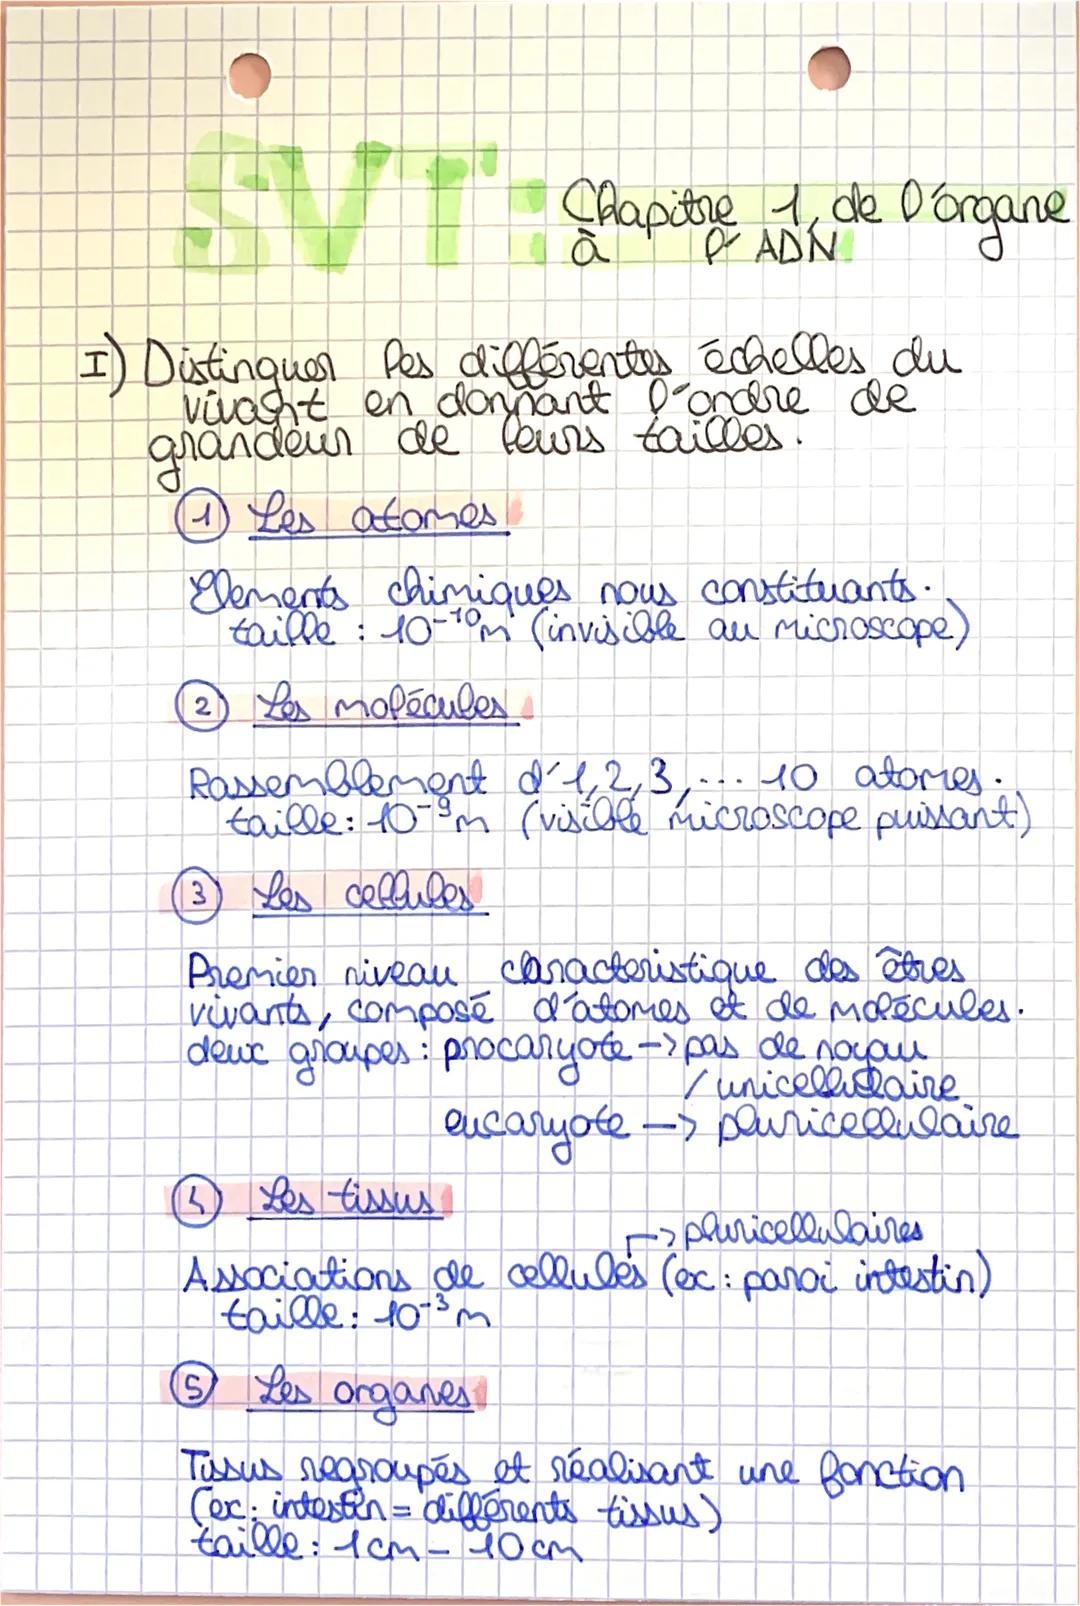 SVT: Chapitre 1, de l'organe
à l'ADN
I) Distinguer les différentes échelles du
vivant en donnant l'ordre de
grandeur de leurs tailles.
1 Les atomes
Elements chimiques nous constituants.
taille : 10⁻¹⁰m (invisible au microscope)
2 Les molécules
Rassemblement d'1,2,3,... 10 atomes.
taille: 10⁻⁹m (visible microscope puissant)
3 Les cellules
Premier niveau claracteristique des êtres
vivants, composé d'atomes et de molécules.
deux groupes : procaryote -> pas de noyau
/ unicellulaire
eucaryote -> pluricellulaire
4 Les tissus
-> pluricellulaires
Associations de cellules (ex : paroi intestin)
taille: 10⁻³m
5 Les organes
Tissus regroupés et réalisant une fonction
(ex: intestin = différents tissus)
taille: 1cm - 10cm